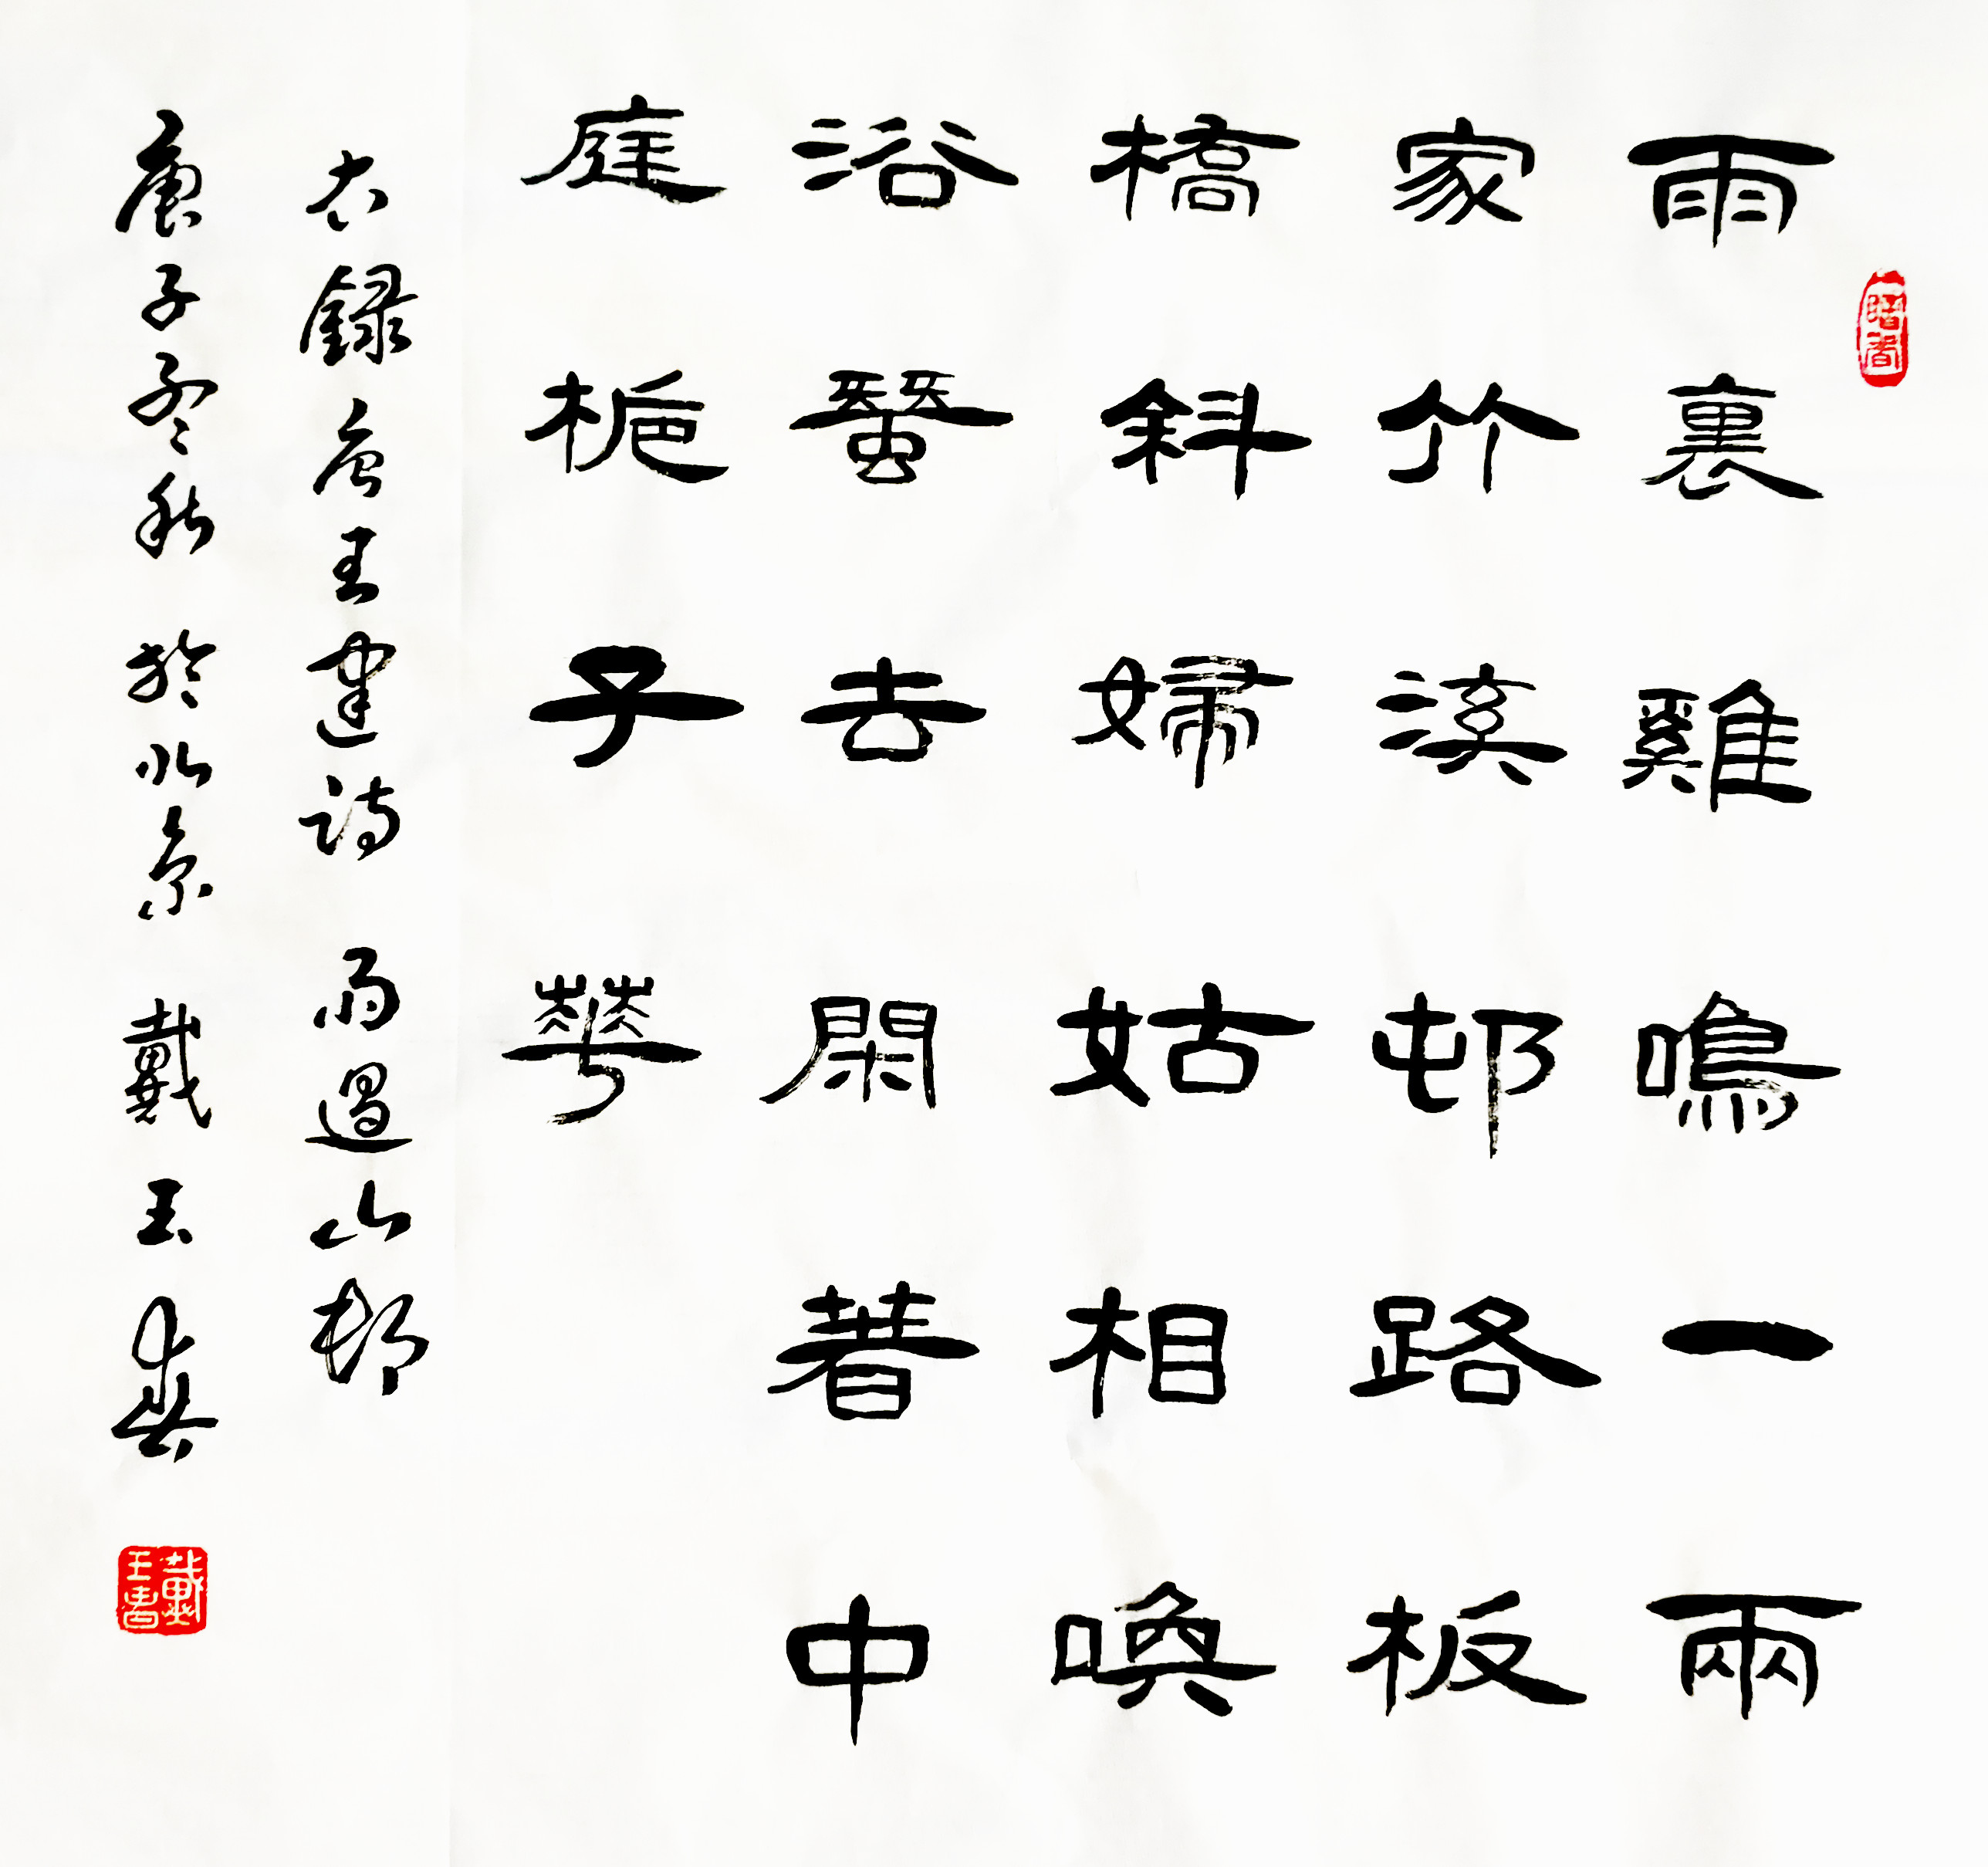 雨裏雞鳴一兩
家竹溪邨路板
橋斜婦姑相喚
浴蠶去閑著中
庭梔子華
右錄唐王建詩 雨過山邨
庚子孟秋 於北京 戴玉
暗香